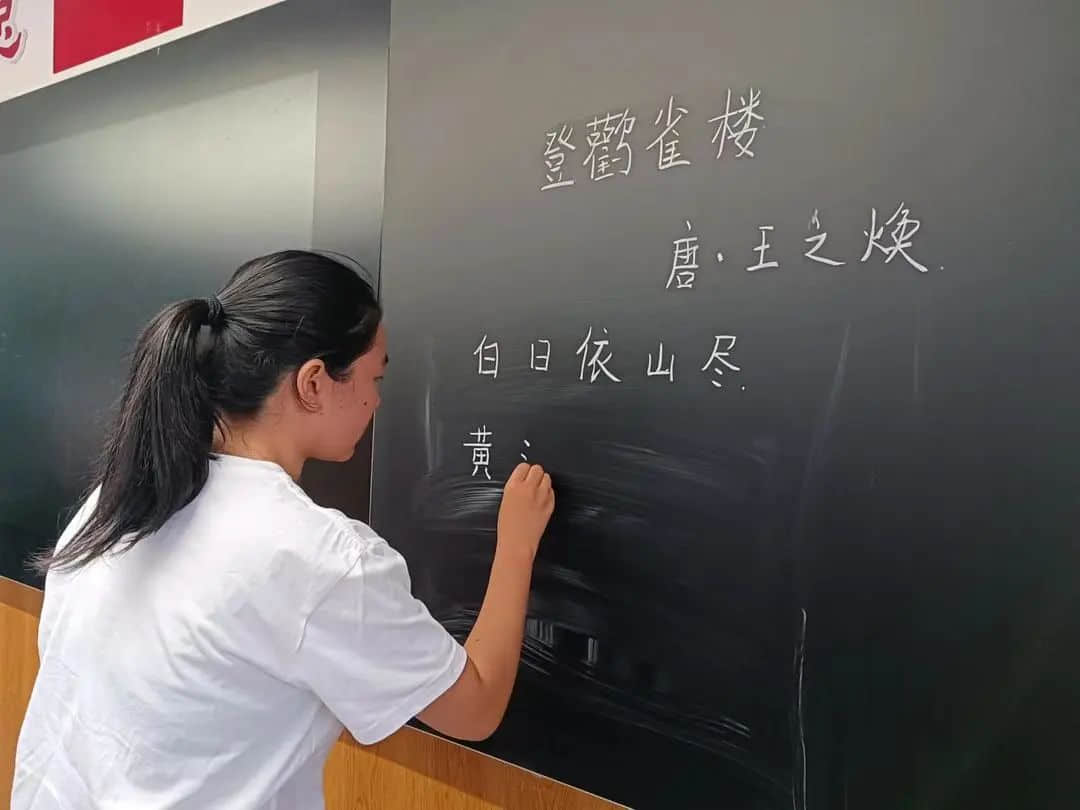 登鹳雀楼
唐·王之焕.
白日依山尽.
黄